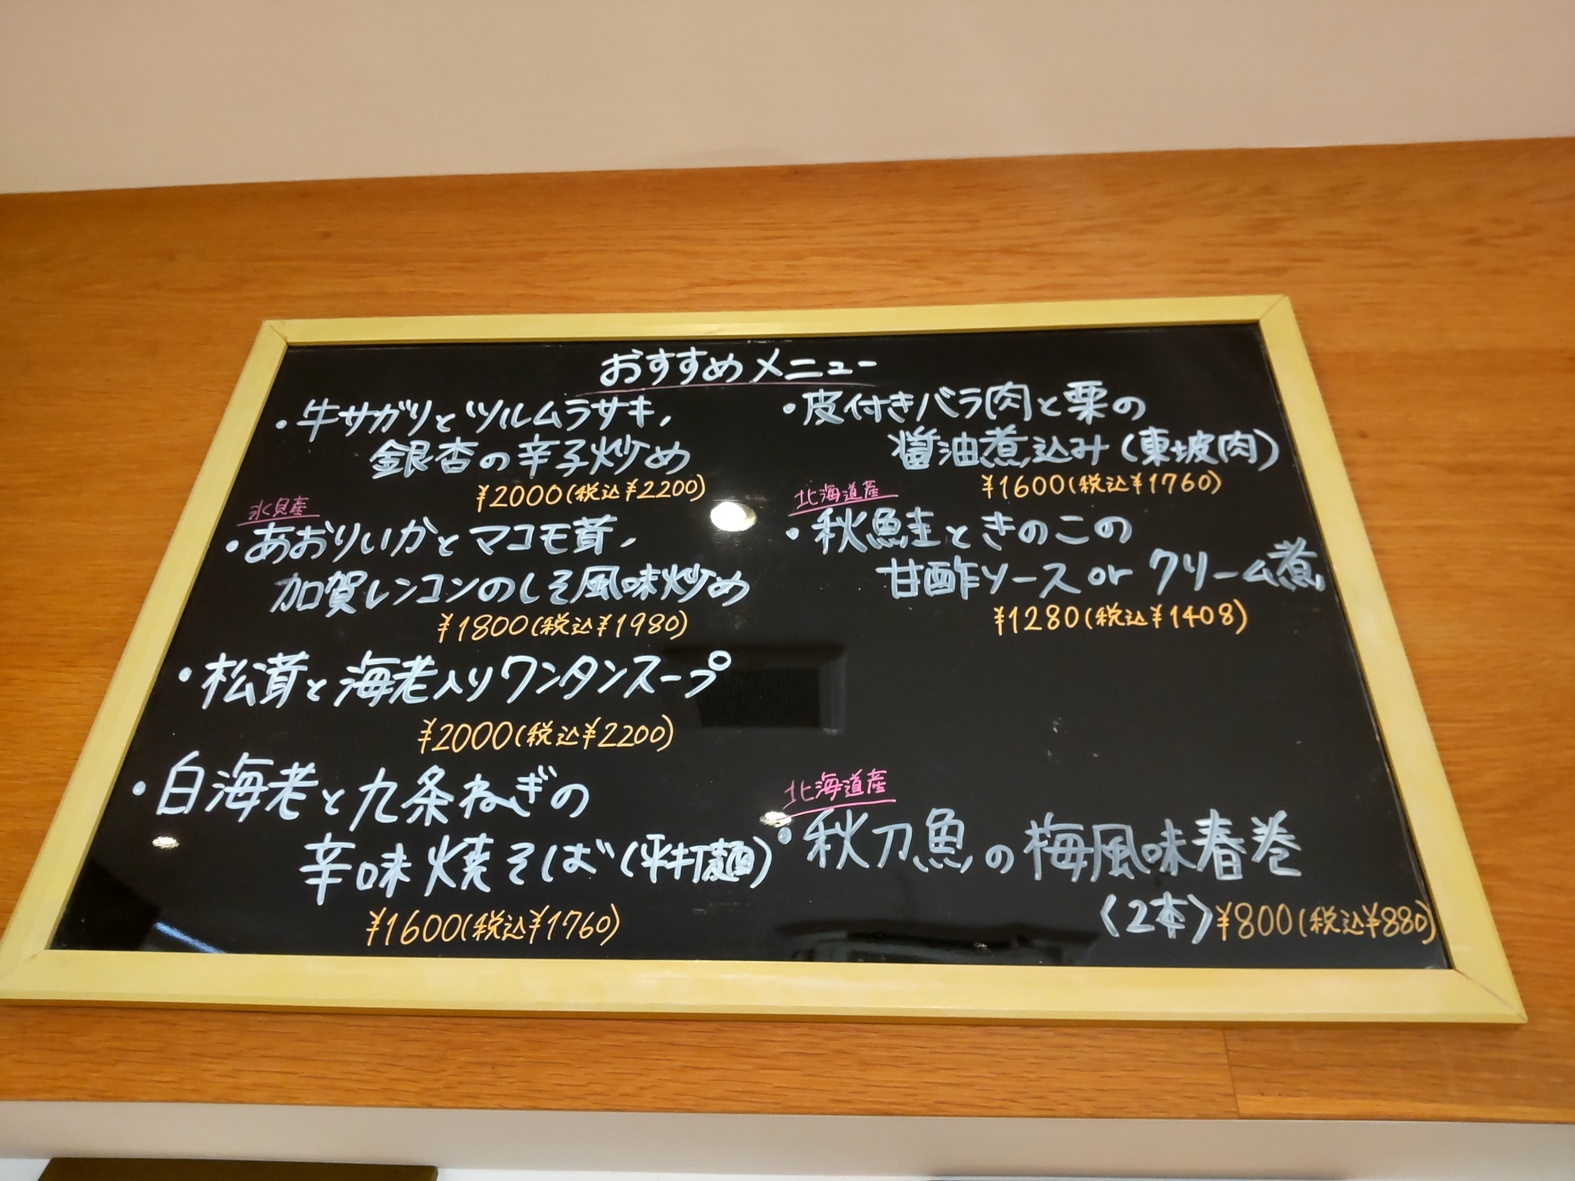 おすすめメニュー
・牛サガリとツルムラサキ、
銀杏の辛子炒め
¥2000(税込¥2200)
氷見産
・あおりいかとマコモ茸、
加賀レンコンのしそ風味炒め
¥1800(税込¥1980)
・松茸と海老入りワンタンスープ
¥2000(税込¥2200)
・白海老と九条ねぎの
辛味焼そば(平打麺)
¥1600(税込¥1760)
・皮付きバラ肉と栗の
醤油煮込み(東坡肉)
¥1600(税込¥1760)
北海道産
・秋鮭ときのこの
甘酢ソース or クリーム煮
¥1280(税込¥1408)
北海道産
・秋刀魚の梅風味春巻
〈2本〉¥800(税込¥880)